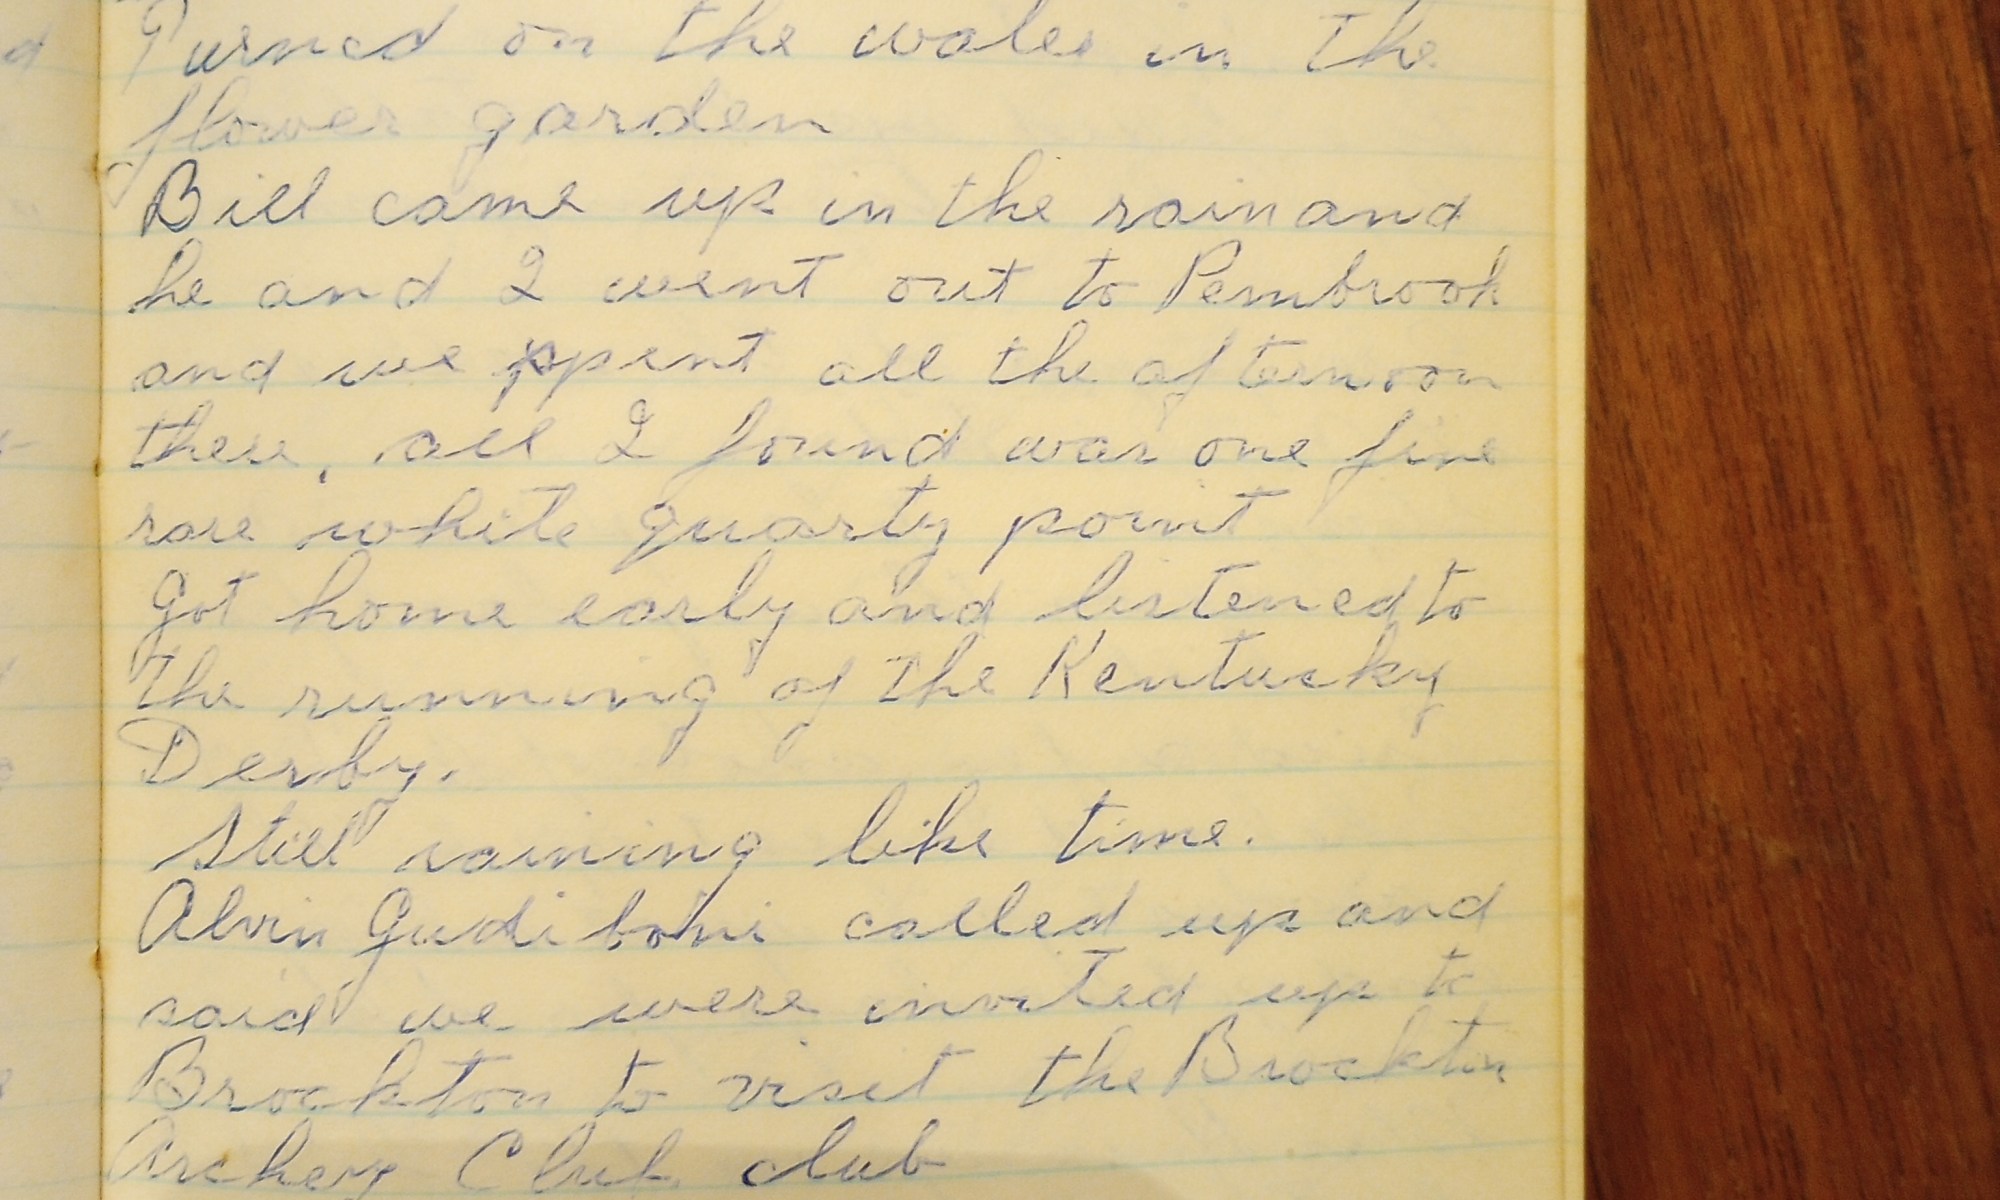 Turned on the water in the
flower garden
Bill came up in the rain and
he and I went out to Pembrook
and we spent all the afternoon
there, all I found was one fine
rare white quartz point
Got home early and listened to
the running of the Kentucky
Derby.
Still raining like time.
Alvin Gudiboni called up and
said we were invited up to
Brockton to visit the Brockton
Archery Club club